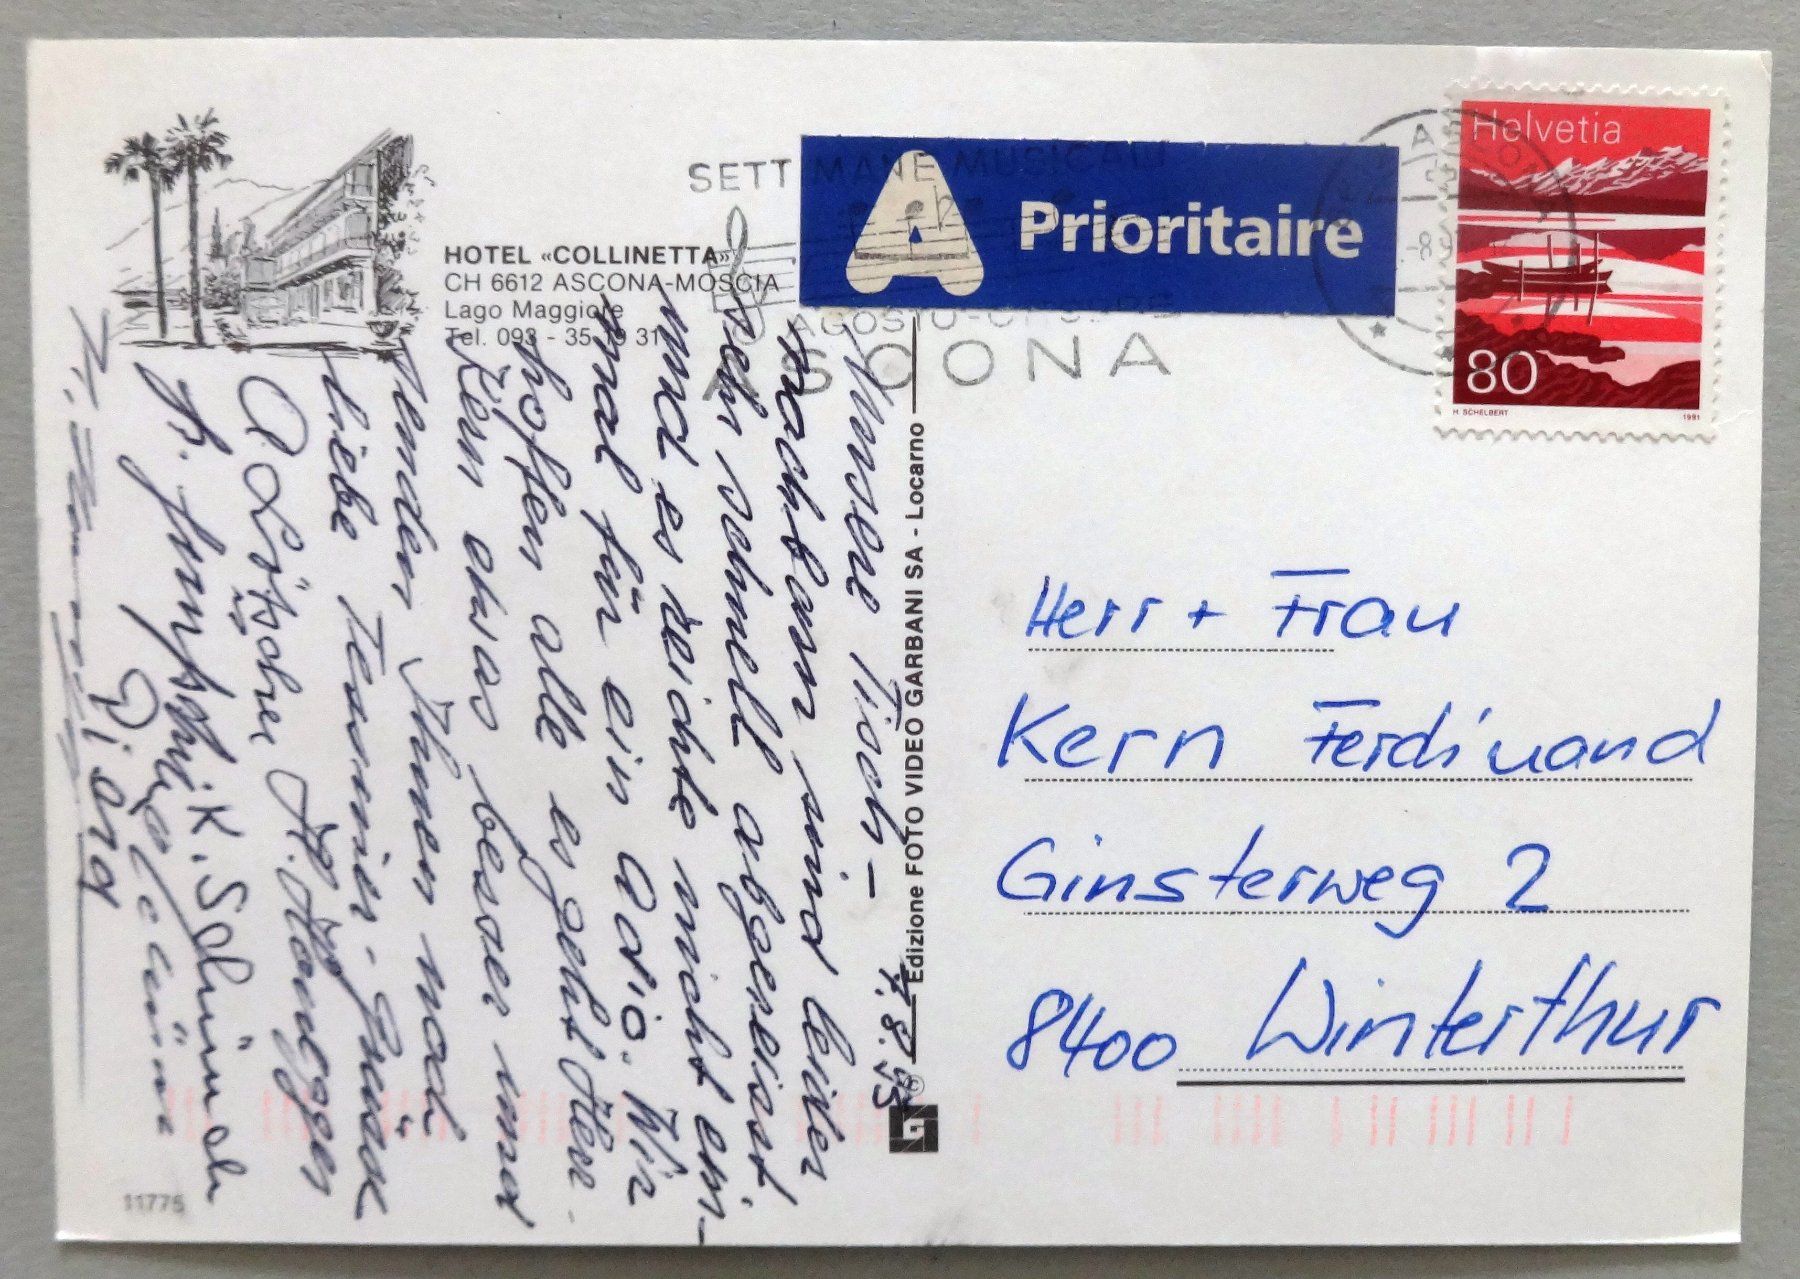 HOTEL «COLLINETTA»
CH 6612 ASCONA-MOSCIA
Lago Maggiore
Tel. 093 - 35 19 31
SETTIMANE MUSICALI
ASCONA
A Prioritaire
Helvetia
80
H. SCHELBERT
1991
7.8.95
Unsere Tisch-
nachbarn sind leider
sehr schnell abgereist
und es reichte nicht ein-
mal für ein Adio. Wir
hoffen alle es geht Herr
Kern etwas besser und
senden Ihnen noch
liebe Tessiner-Grüsse
A. Lötscher H. Honegger
K. Schürch
Edizione FOTO VIDEO GARBANI SA - Locarno
©
Herr + Frau
Kern Ferdinand
Ginsterweg 2
8400 Winterthur
11775